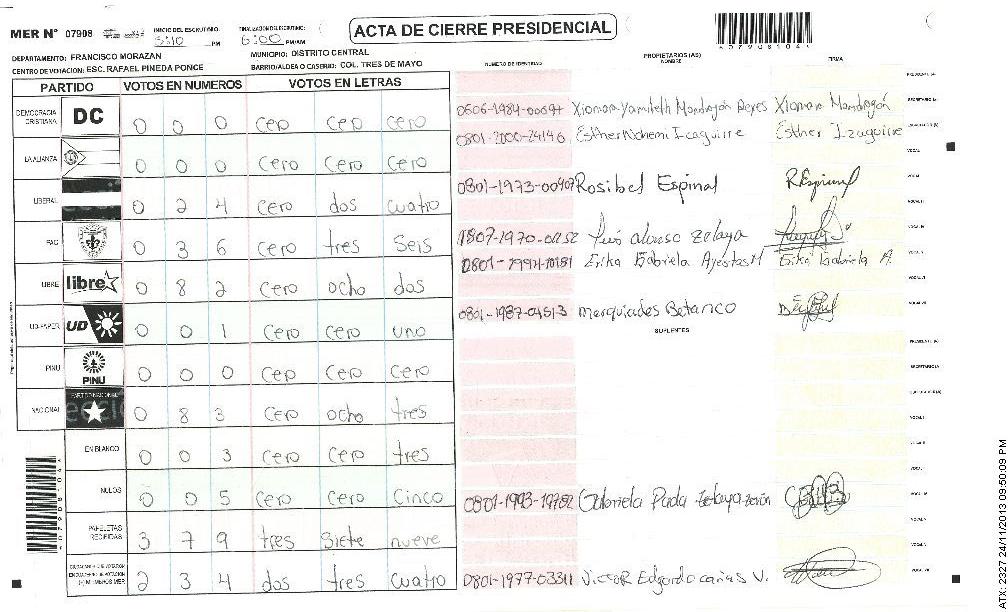 MER N° 07908 INICIO DEL ESCRUTINIO: 5:10 PM FINALIZACION DEL ESCRUTINIO: 6:00 PM/AM ACTA DE CIERRE PRESIDENCIAL
DEPARTAMENTO: FRANCISCO MORAZAN MUNICIPIO: DISTRITO CENTRAL
CENTRO DE VOTACION: ESC. RAFAEL PINEDA PONCE BARRIO/ALDEA O CASERIO: COL. TRES DE MAYO
PARTIDO VOTOS EN NUMEROS VOTOS EN LETRAS
DEMOCRACIA CRISTIANA DC 0 0 0 cero cero cero
LA ALIANZA 0 0 0 cero cero cero
LIBERAL 0 2 4 cero dos cuatro
PAC 0 3 6 cero tres Seis
LIBRE libre 0 8 2 cero ocho dos
UD-FAPER UD 0 0 1 cero cero uno
PINU PINU 0 0 0 cero cero cero
NACIONAL 0 8 3 cero ocho tres
EN BLANCO 0 0 3 cero cero tres
NULOS 0 0 5 cero cero Cinco
PAPELETAS RECIBIDAS 3 7 9 tres Siete nueve
2 3 4 dos tres cuatro
NUMERO DE IDENTIDAD PROPIETARIOS (AS) NOMBRE FIRMA
PRESIDENTE (A)
SECRETARIO (A)
Xiomara Yamileth Mondragón Reyes Xiomara Mondragón
ESCRUTADOR (A)
0801-2000-24146 Esther Nohemi Izaguirre Esther Izaguirre
VOCAL I
0801-1973-00407 Rosibel Espinal R Espinal
Luis alonso zelaya
Erika Gabriela Erika Gabriela A.
0801-1987-04513 merquiades Betanco
SUPLENTES
PRESIDENTE (A)
SECRETARIO (A)
Gabriela
0801-1977-03311 Victor Edgardo cañas V.
ATX: 2327 24/11/2013 09:50:09 PM